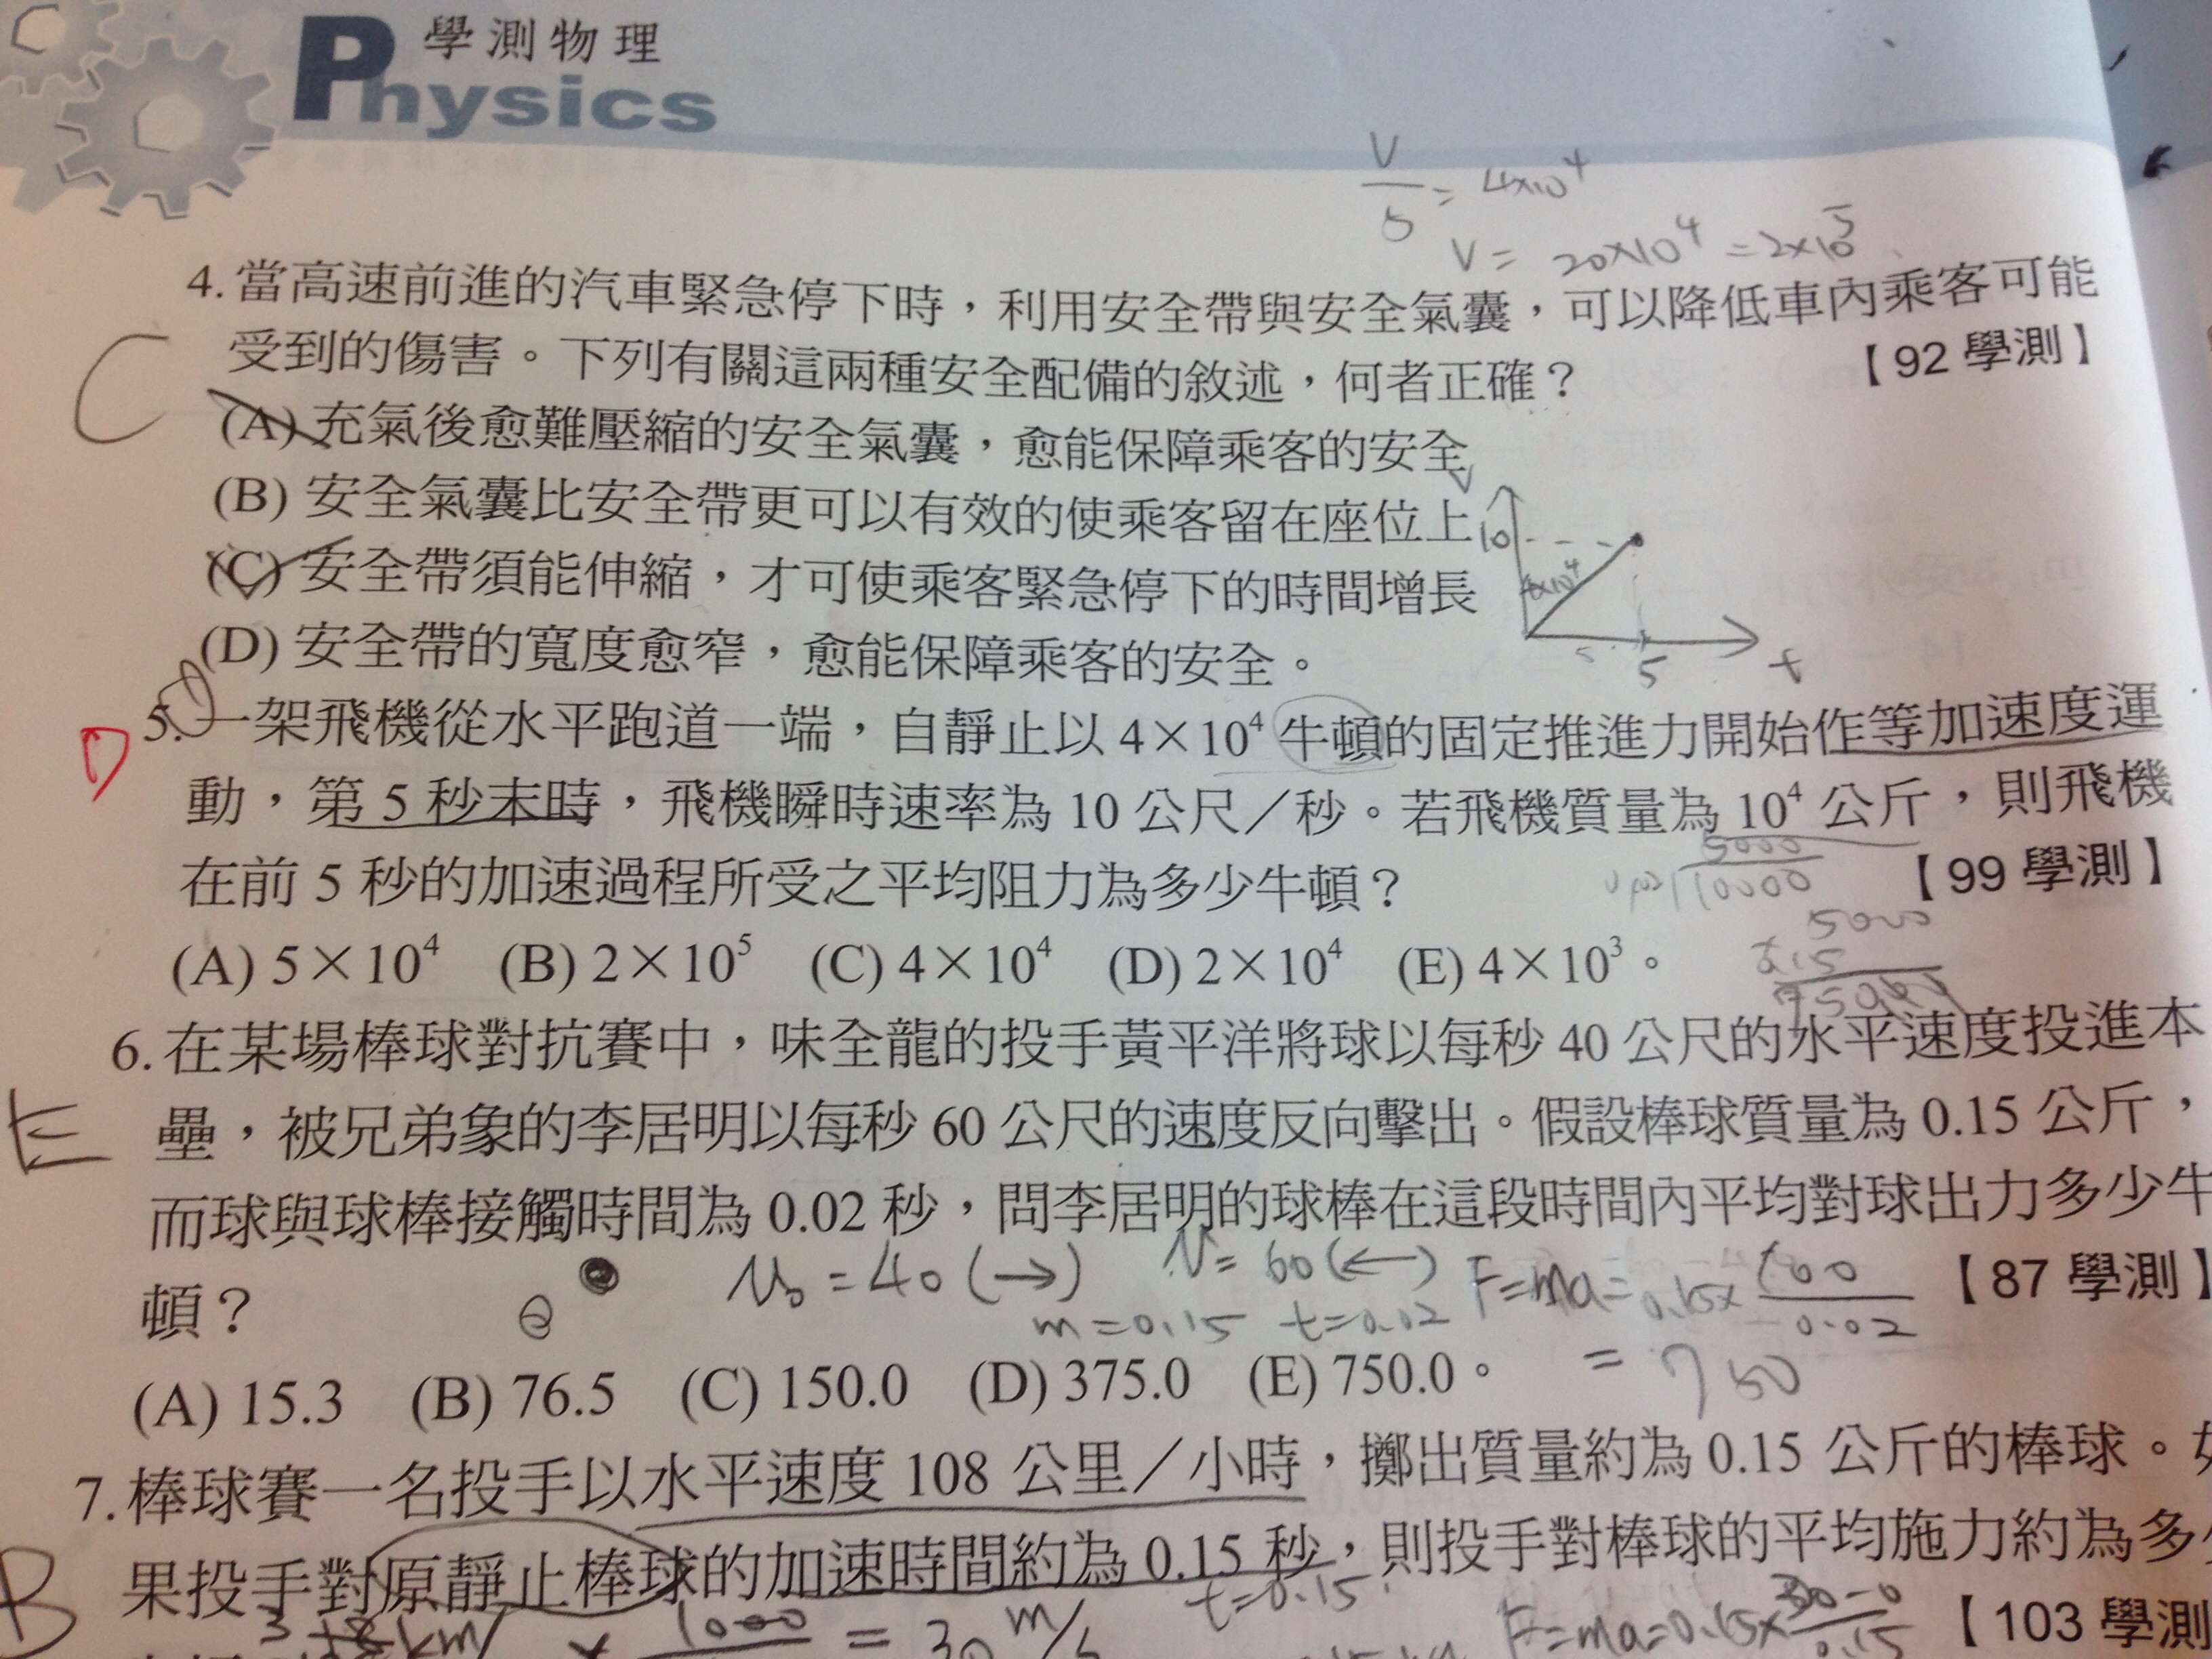 學測物理
Physics
V/5 = 4×10⁴
V = 20×10⁴ = 2×10⁵
4. 當高速前進的汽車緊急停下時，利用安全帶與安全氣囊，可以降低車內乘客可能
受到的傷害。下列有關這兩種安全配備的敘述，何者正確？ 【92 學測】
C
(A) 充氣後愈難壓縮的安全氣囊，愈能保障乘客的安全
(B) 安全氣囊比安全帶更可以有效的使乘客留在座位上
(C) 安全帶須能伸縮，才可使乘客緊急停下的時間增長
(D) 安全帶的寬度愈窄，愈能保障乘客的安全。
V
10
4×10⁴
5
t
D
5. 一架飛機從水平跑道一端，自靜止以 4×10⁴ 牛頓的固定推進力開始作等加速度運
動，第 5 秒末時，飛機瞬時速率為 10 公尺／秒。若飛機質量為 10⁴ 公斤，則飛機
在前 5 秒的加速過程所受之平均阻力為多少牛頓？ 【99 學測】
5000
10000
5000
(A) 5×10⁴ (B) 2×10⁵ (C) 4×10⁴ (D) 2×10⁴ (E) 4×10³。
6. 在某場棒球對抗賽中，味全龍的投手黃平洋將球以每秒 40 公尺的水平速度投進本
E
壘，被兄弟象的李居明以每秒 60 公尺的速度反向擊出。假設棒球質量為 0.15 公斤，
而球與球棒接觸時間為 0.02 秒，問李居明的球棒在這段時間內平均對球出力多少牛
頓？ 【87 學測】
V₀ = 40 (→) V = 60 (←) F=ma=0.15×100/0.02
m=0.15 t=0.02
= 750
(A) 15.3 (B) 76.5 (C) 150.0 (D) 375.0 (E) 750.0。
7. 棒球賽一名投手以水平速度 108 公里／小時，擲出質量約為 0.15 公斤的棒球。如
B
果投手對原靜止棒球的加速時間約為 0.15 秒，則投手對棒球的平均施力約為多少
t=0.15
× 1000 = 30 m/s
F=ma=0.15×30-0/0.15
【103 學測